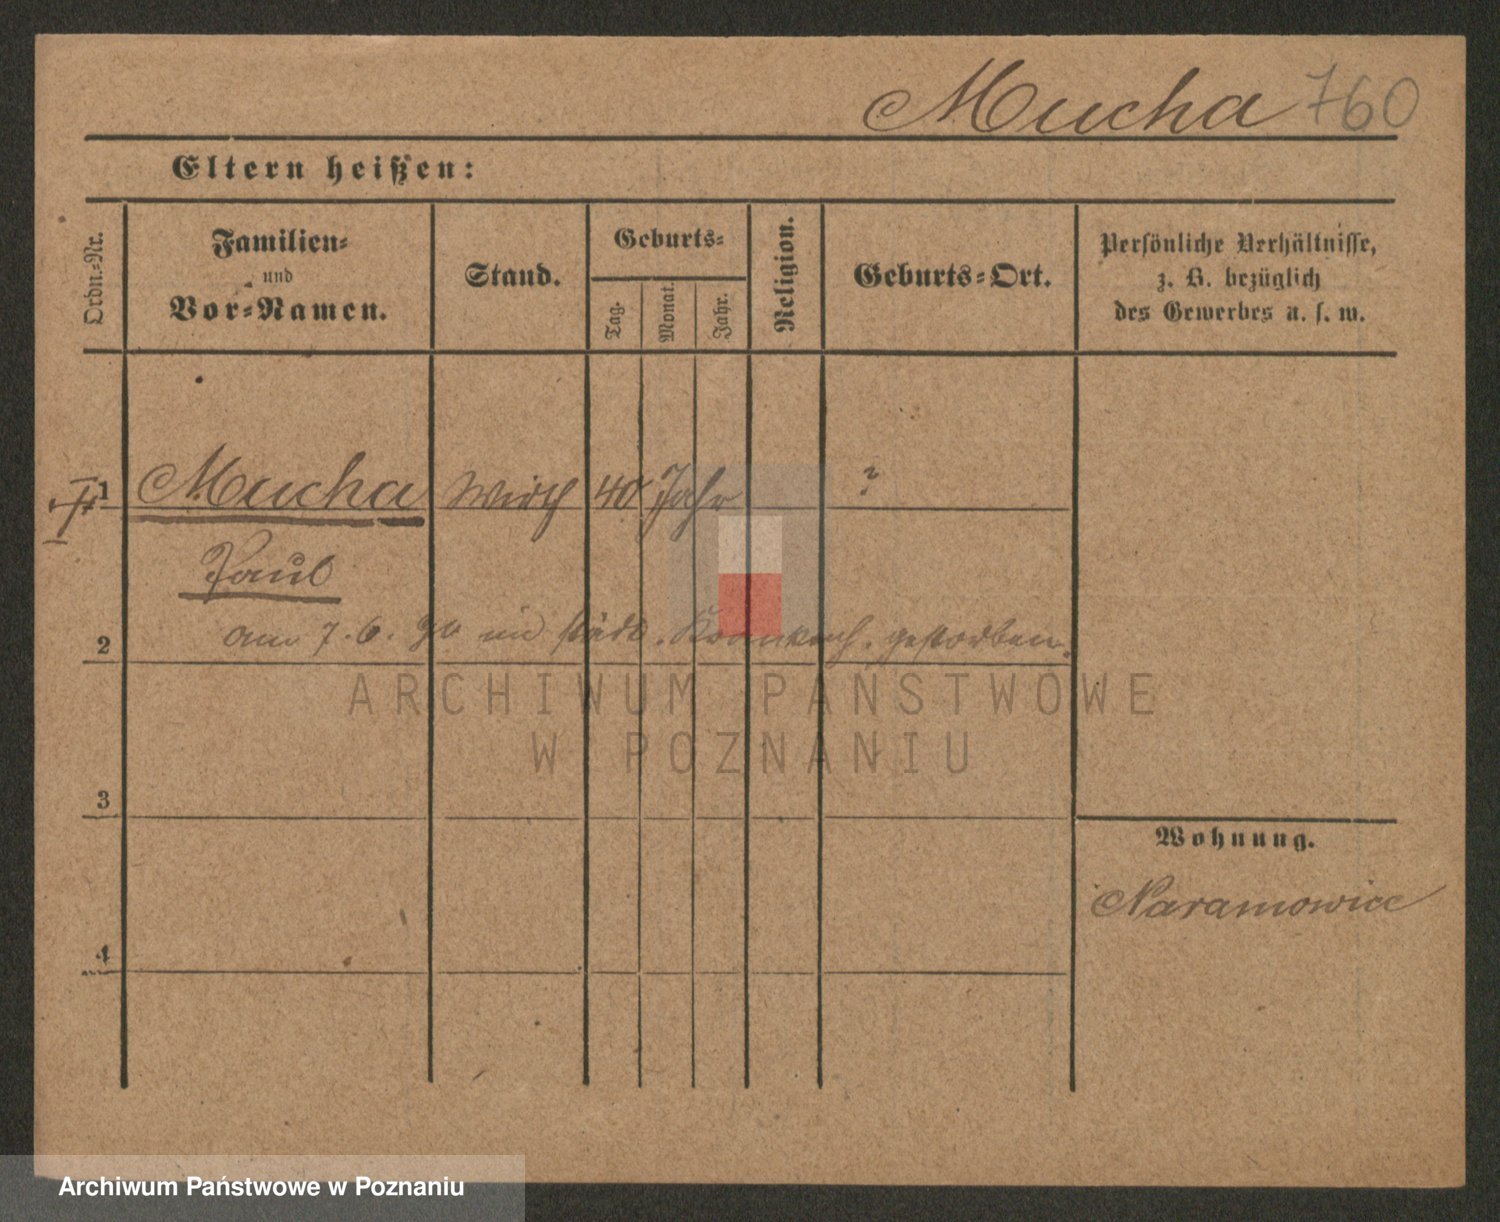 Mucha 760
Eltern heißen:
Ordn.-Nr.
Familien-
und
Vor-Namen.
Stand.
Geburts-
Tag.
Monat.
Jahr.
Religion.
Geburts-Ort.
Persönliche Verhältnisse,
z. B. bezüglich
des Gewerbes u. s. w.
1 Mucha Wirth 40 Jahr ?
Paul
am 7. 6. 90 im städt. Krankenh. gestorben.
2
ARCHIWUM PAŃSTWOWE
W POZNANIU
3
Wohnung.
Naramowice
4
Archiwum Państwowe w Poznaniu